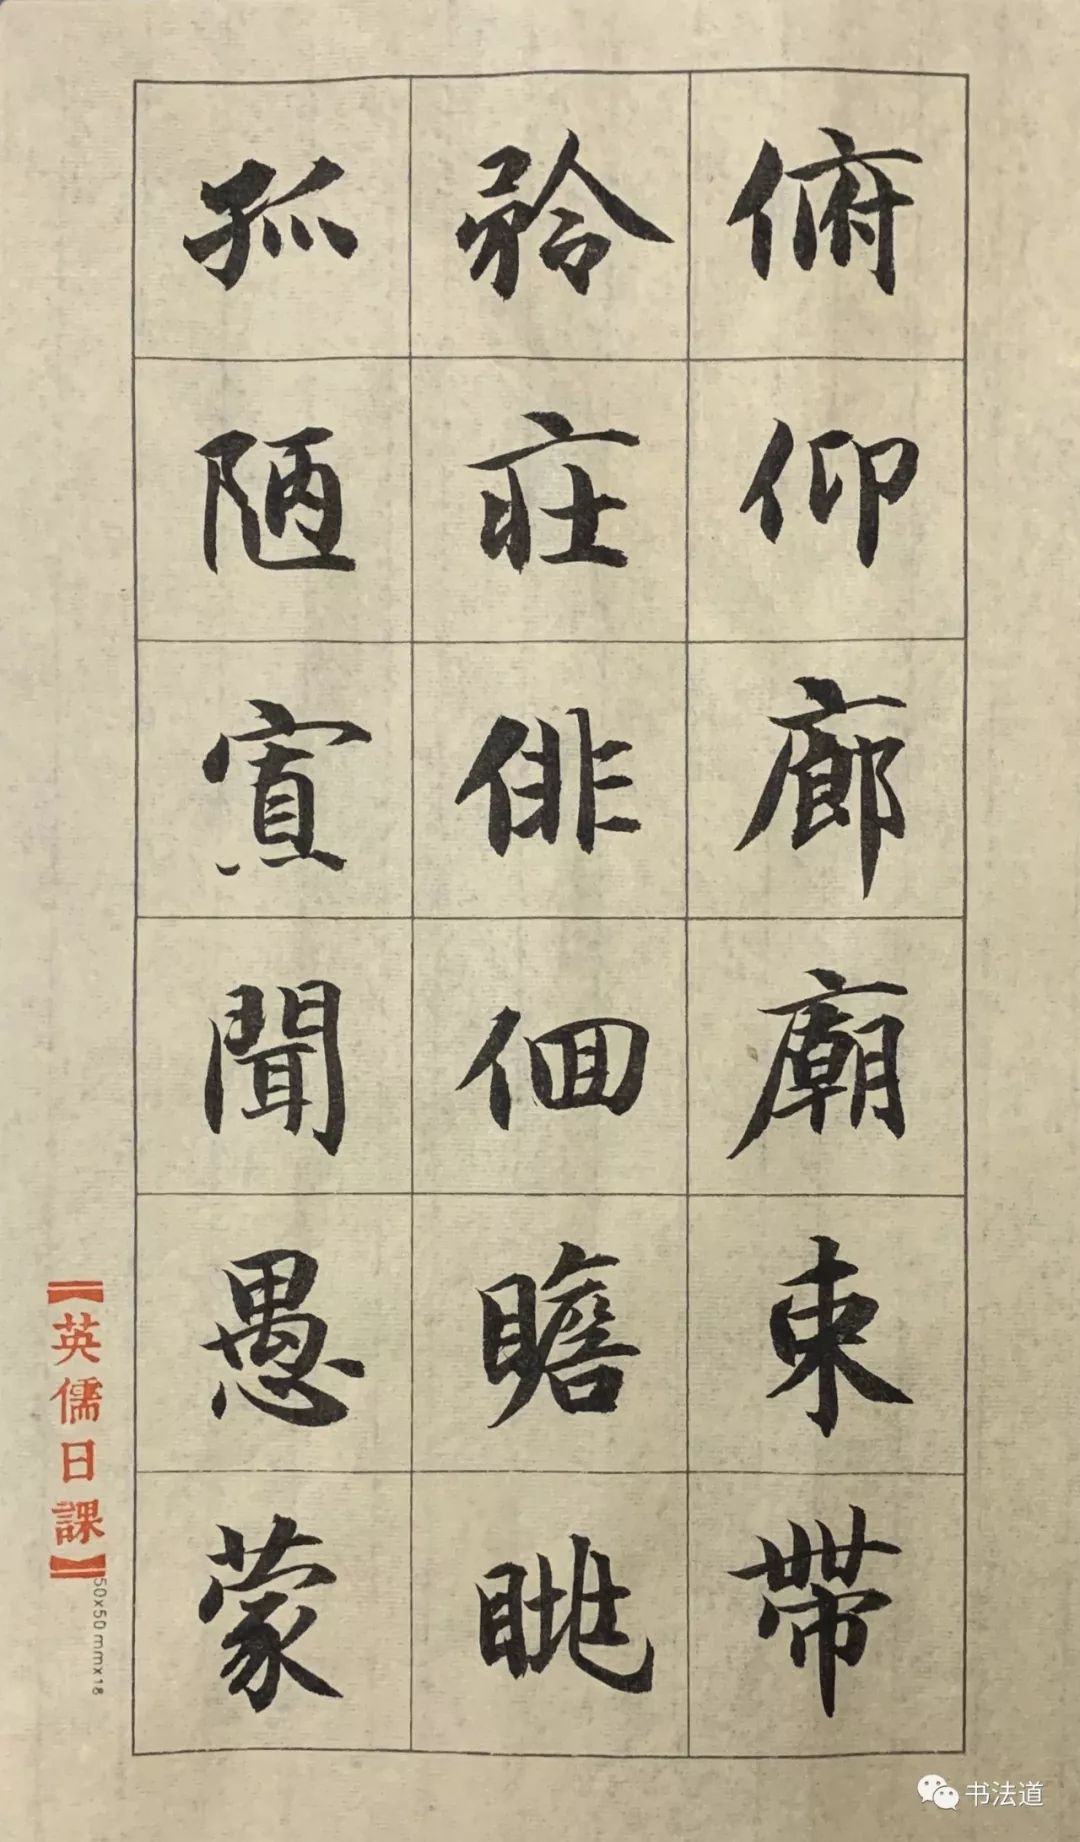 俯仰廊廟束帶
矜莊俳佪瞻眺
孤陋寡聞愚蒙
【英儒日課】
50x50mmx18
书法道